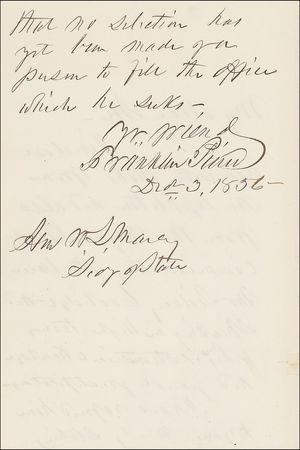 that no selection has
yet been made of a
person to fill the office
which he seeks -
Yr. friend
Franklin Pierce
Dec 3, 1856 -
Hon W L Marcy
Sec'y of State